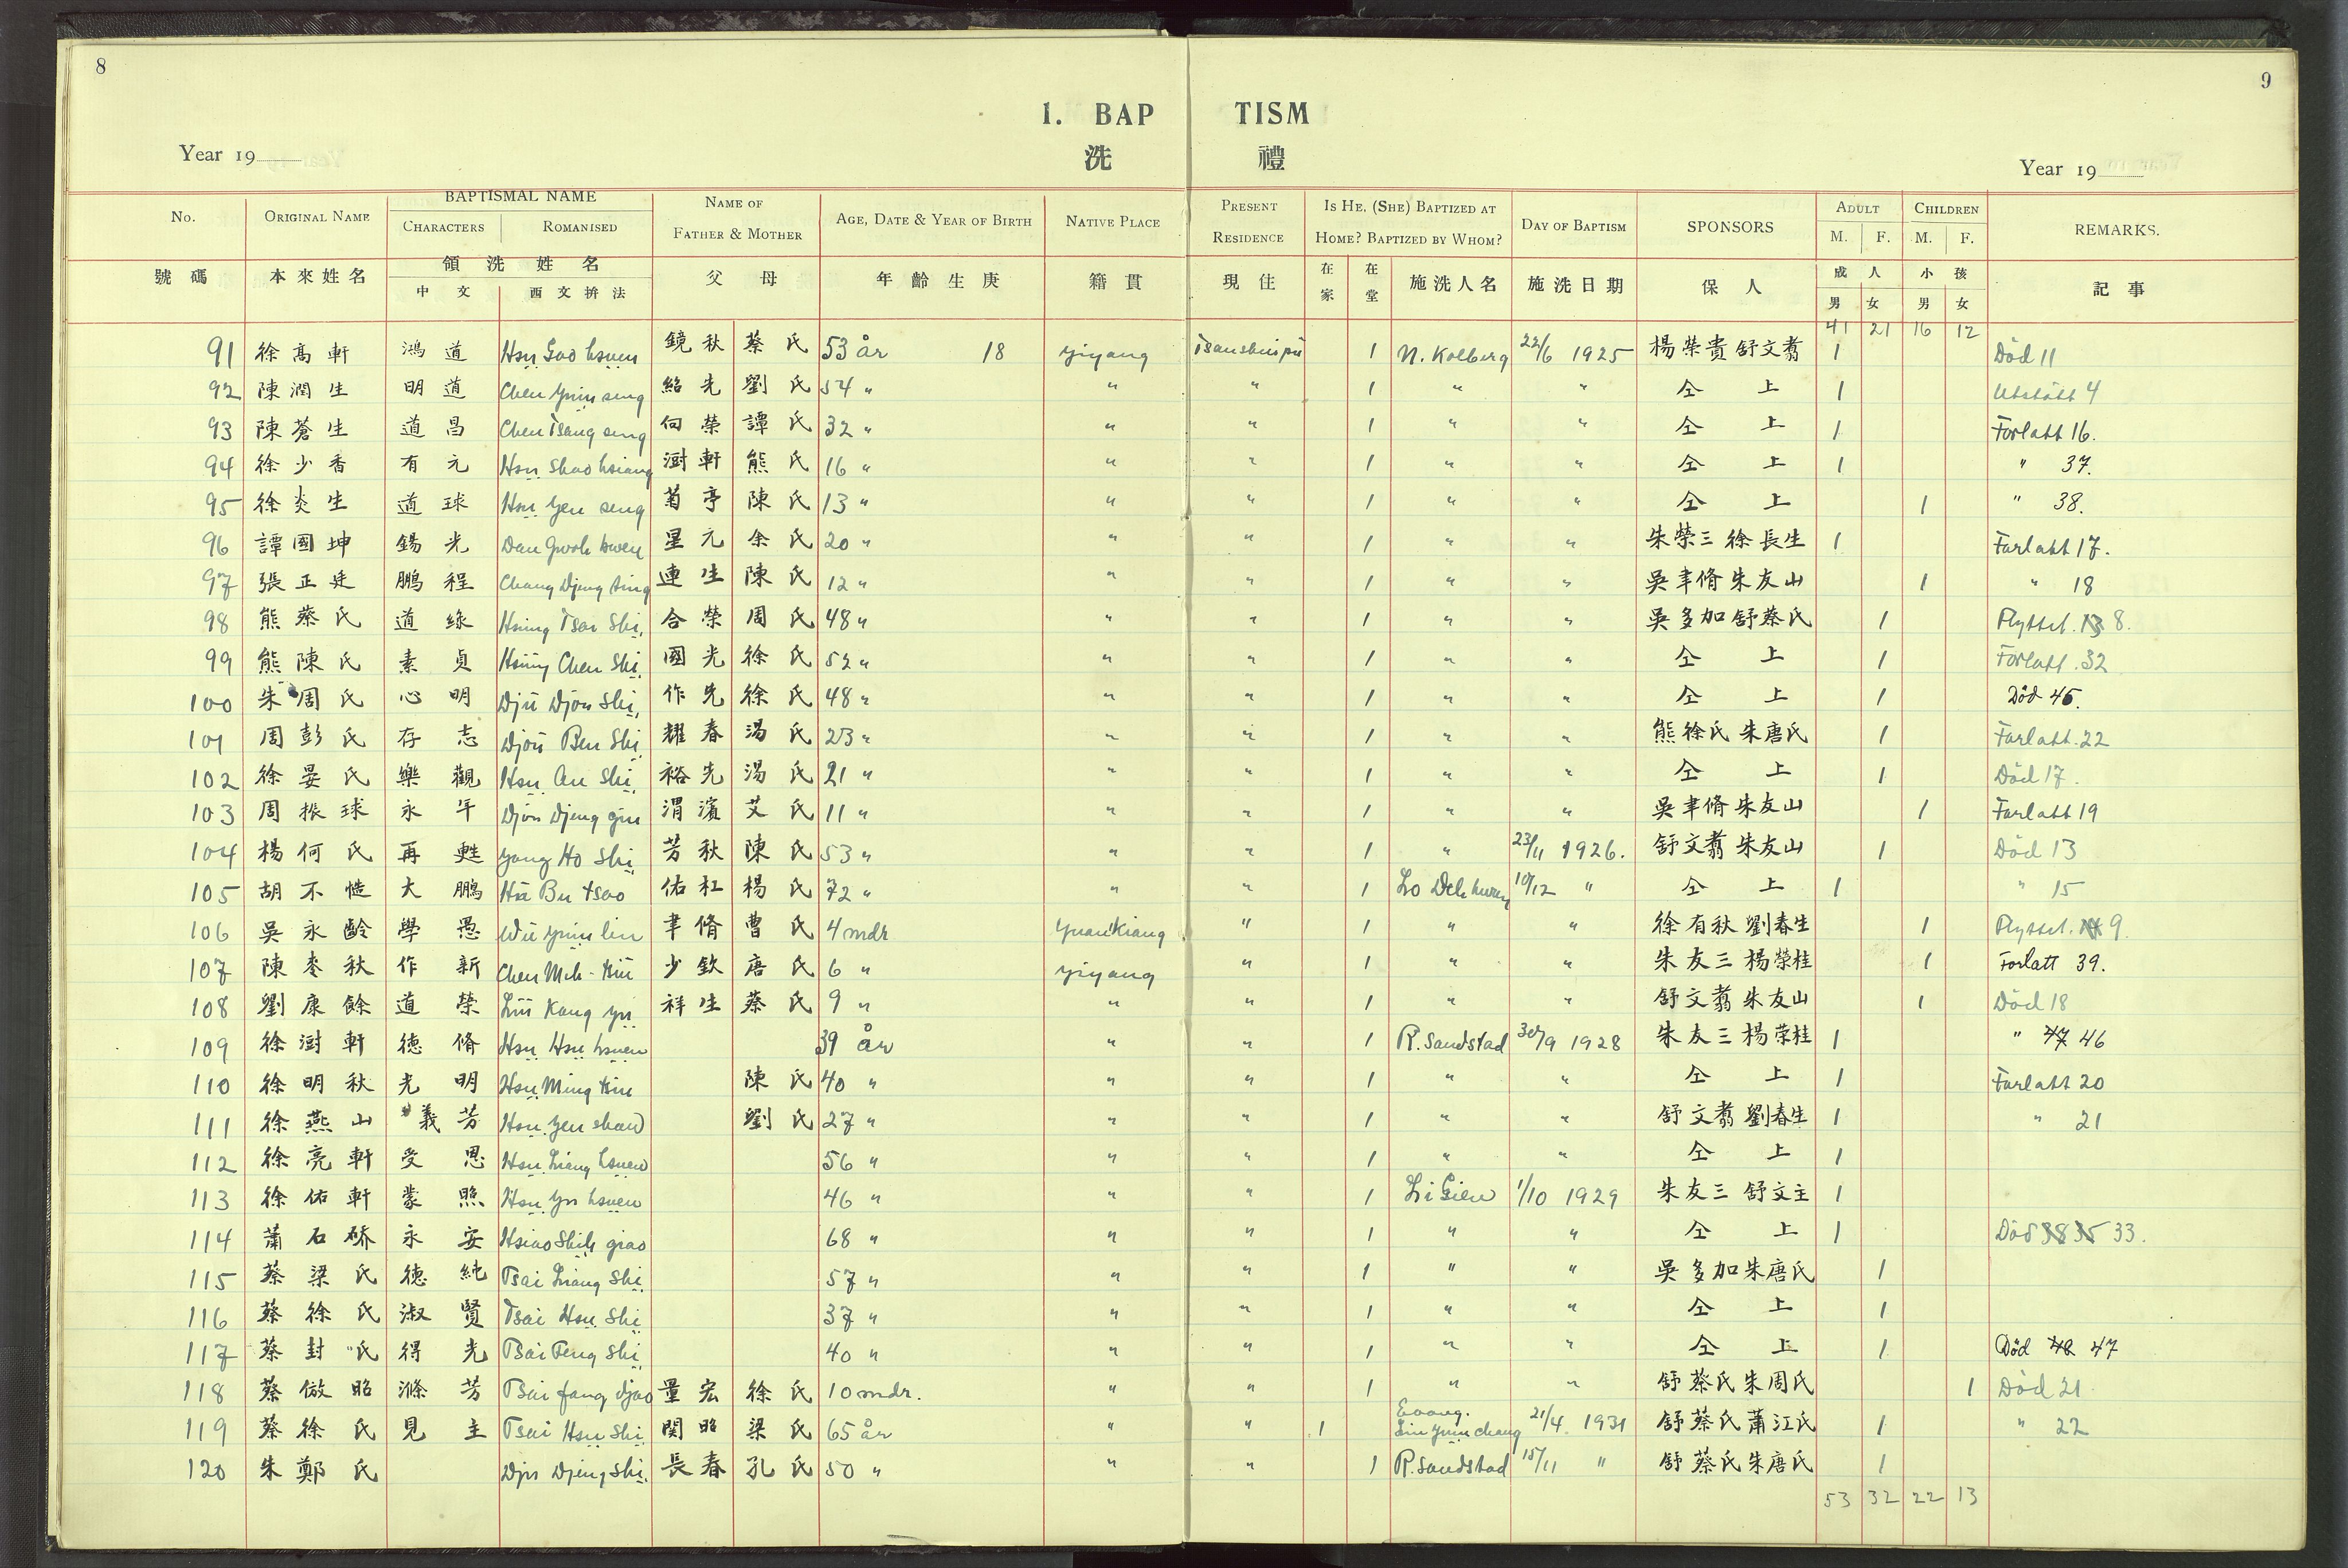 8
9
1. BAP TISM
洗 禮
Year 19
Year 19
No. ORIGINAL NAME BAPTISMAL NAME CHARACTERS ROMANISED NAME OF FATHER & MOTHER AGE, DATE & YEAR OF BIRTH NATIVE PLACE PRESENT RESIDENCE IS HE, (SHE) BAPTIZED AT HOME? BAPTIZED BY WHOM? DAY OF BAPTISM SPONSORS ADULT M. F. CHILDREN M. F. REMARKS.
號碼 本來姓名 領洗姓名 中文 西文拚法 父母 年齡生庚 籍貫 現住 在家 在堂 施洗人名 施洗日期 保人 成人 男 女 小孩 男 女 記事
41 21 16 12
91 徐高軒 鴻道 Hsu Gao hsuen 鏡秋 蔡氏 53 år 18 Yiyang Tsaushipu 1 N. Kolberg 22/6 1925 楊榮貴 舒文翥 1 Död 11
92 陳潤生 明道 Chen Yuin seng 紹先 劉氏 54 " " " 1 " " 仝上 1 Utstött 4
93 陳蒼生 道昌 Chen Tsang seng 向榮 譚氏 32 " " " 1 " " 仝上 1 Forlatt 16.
94 徐少香 有元 Hsu Shao hsiang 澍軒 熊氏 16 " " " 1 " " 仝上 1 " 37.
95 徐炎生 道球 Hsu Yen seng 菊亭 陳氏 13 " " " 1 " " 仝上 1 " 38.
96 譚國坤 錫光 Dan Gwoh kwen 星元 余氏 20 " " " 1 " " 朱榮三 徐長生 1 Forlatt 17.
97 張正廷 鵬程 Chang Djeng ting 連生 陳氏 12 " " " 1 " " 吳聿脩 朱友山 1 " 18
98 熊蔡氏 道緣 Hsiung Tsai Shi, 合榮 周氏 48 " " " 1 " " 吳多加 舒蔡氏 1 Flyttet. 8.
99 熊陳氏 素貞 Hsiung Chen Shi, 國光 徐氏 52 " " " 1 " " 仝上 1 Forlatt. 32
100 朱周氏 心明 Djü Djou Shi, 作先 徐氏 48 " " " 1 " " 仝上 1 Död 45.
101 周彭氏 存志 Djou Ben Shi 耀春 湯氏 23 " " " 1 " " 熊徐氏 朱唐氏 1 Forlatt. 22
102 徐晏氏 樂觀 Hsu An Shi, 裕先 湯氏 21 " " " 1 " " 仝上 1 Död 17.
103 周振球 永年 Djou Djeng giu 渭濱 艾氏 11 " " " 1 " " 吳聿脩 朱友山 1 Forlatt 19
104 楊何氏 再甦 Yang Ho Shi 芳秋 陳氏 53 " " " 1 " 23/11 1926. 舒文翥 朱友山 1 Död 13
105 胡不慥 大鵬 Hu Bu tsao 佑杠 楊氏 72 " " " 1 Lo Deh hwen 10/12 " 仝上 1 " 15
106 吳永齡 學愚 Wu Yuin lin 聿脩 曹氏 4 mdr Yuankiang " 1 " " 徐有秋 劉春生 1 Flyttet. 9.
107 陳麥秋 作新 Chen Meh-tsiu 少欽 唐氏 6 " Yiyang " 1 " " 朱友三 楊榮桂 1 Forlatt 39.
108 劉康餘 道榮 Liu Kang yu 祥生 蔡氏 9 " " " 1 " " 舒文翥 朱友山 1 Död 18
109 徐澍軒 德脩 Hsu Hsu hsuen 39 år " " 1 R. Sandstad 30/9 1928 朱友三 楊荣桂 1 " 47 46
110 徐明秋 光明 Hsu Ming tsiu 陳氏 40 " " " 1 " " 仝上 1 Forlatt 20
111 徐燕山 義芳 Hsu Yen shan 劉氏 27 " " " 1 " " 舒文翥 劉春生 1 " 21
112 徐亮軒 受恩 Hsu Liang hsuen 56 " " " 1 " " 仝上 1
113 徐佑軒 蒙照 Hsu Yu hsuen 46 " " " 1 Li Gien 1/10 1929 朱友三 舒文主 1
114 蕭石矫 永安 Hsiao Shih giao 68 " " " 1 " " 仝上 1 Död 38 35 33.
115 蔡梁氏 德純 Tsai Liang Shi 57 " " " 1 " " 吳多加 朱唐氏 1
116 蔡徐氏 淑賢 Tsai Hsu Shi 37 " " " 1 " " 仝上 1
117 蔡封氏 得光 Tsai Feng Shi, 40 " " " 1 " " 仝上 1 Död 48 47
118 蔡倣昭 滌芳 Tsai fang djao 量宏 徐氏 10 mdr. " " 1 " " 舒蔡氏 朱周氏 1 Död 21.
119 蔡徐氏 見主 Tsai Hsu Shi, 関昭 梁氏 65 år " " 1 Evang. Liu Yuin chang 21/4. 1931 舒蔡氏 蕭江氏 1 " 22
120 朱鄭氏 Dju Djeng Shi, 長春 孔氏 50 " " " 1 R. Sandstad 15/11 " 舒蔡氏 朱唐氏 1
53 32 22 13